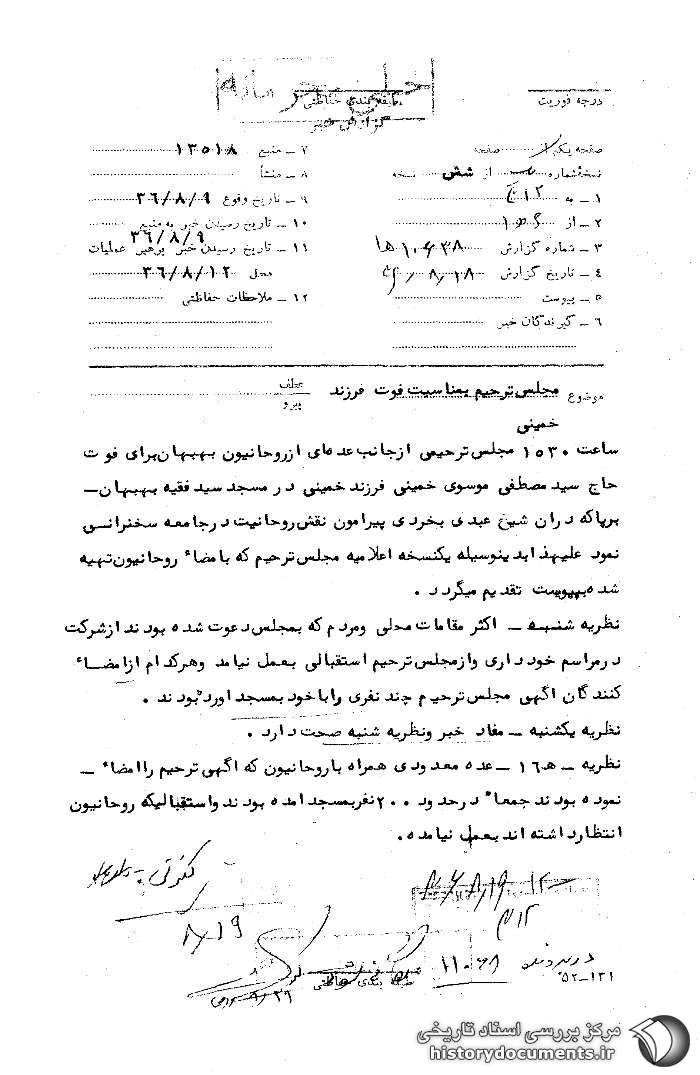 خیلی محرمانه
درجه فوریت
طبقه‌بندی حفاظتی
گزارش خبر
صفحه یک از صفحه
نسخه‌شماره از شش نسخه
۱ – به ۳۱۲
۲ – از
۳ – شماره گزارش
۴ – تاریخ گزارش
۵ – پیوست
۶ – گیرندگان خبر
۷ – منبع ۱۳۵۱۸
۸ – منشأ
۹ – تاریخ وقوع ۳۶/۸/۹
۱۰ – تاریخ رسیدن خبر به منبع ۳۶/۸/۹
۱۱ – تاریخ رسیدن خبر برهبر عملیات
محل ۳۶/۸/۱۲
۱۲ – ملاحظات حفاظتی
موضوع مجلس ترحیم بمناسبت فوت فرزند
خمینی
عطف
پیرو
ساعت ۱۵۳۰ مجلس ترحیمی ازجانب عده‌ای ازروحانیون بهبهان برای فوت
حاج سید مصطفی موسوی خمینی فرزند خمینی در مسجد سید فقیه بهبهان –
برپاکه دران شیخ عبدی بخردی پیرامون نقش روحانیت درجامعه سخنرانی
نمود علیهذا بدینوسیله یکنسخه اعلامیه مجلس ترحیم که بامضاء روحانیون تهیه
شده بپیوست تقدیم میگردد .
نظریه شنبه – اکثر مقامات محلی ومردم که بمجلس دعوت شده بودند ازشرکت
درمراسم خودداری وازمجلس ترحیم استقبالی بعمل نیامد وهرکدام ازامضاء
کنندگان اگهی مجلس ترحیم چند نفری راباخود بمسجد اورده بودند .
نظریه یکشنبه – مفاد خبر ونظریه شنبه صحت دارد .
نظریه – ۱۶ﻫ – عده معدودی همراه باروحانیون که اگهی ترحیم راامضاء –
نموده بودند جمعاً درحدود ۲۰۰ نفربمسجد امده بودند واستقبالیکه روحانیون
انتظارداشته اند بعمل نیامده .
۸/۱۹
۳۱۲
در پرونده
۵۲–۱۲۱
طبقه بندی حفاظتی
مرکز بررسی اسناد تاریخی
historydocuments.ir